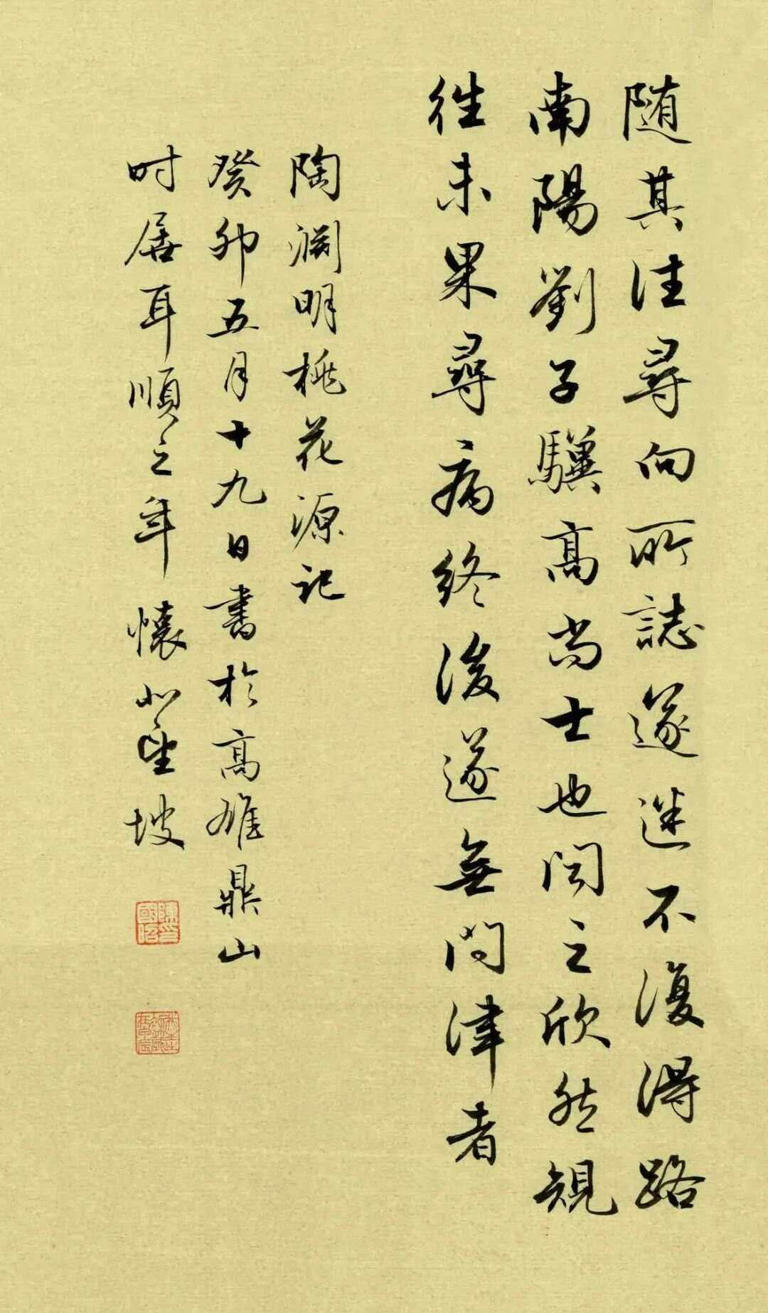 随其往尋向所誌遂迷不復得路
南陽劉子驥高尚士也聞之欣然規
往未果尋病終後遂無問津者
陶淵明桃花源記
癸卯五月十九日書於高雄鼎山
时居耳順之年懷小坡